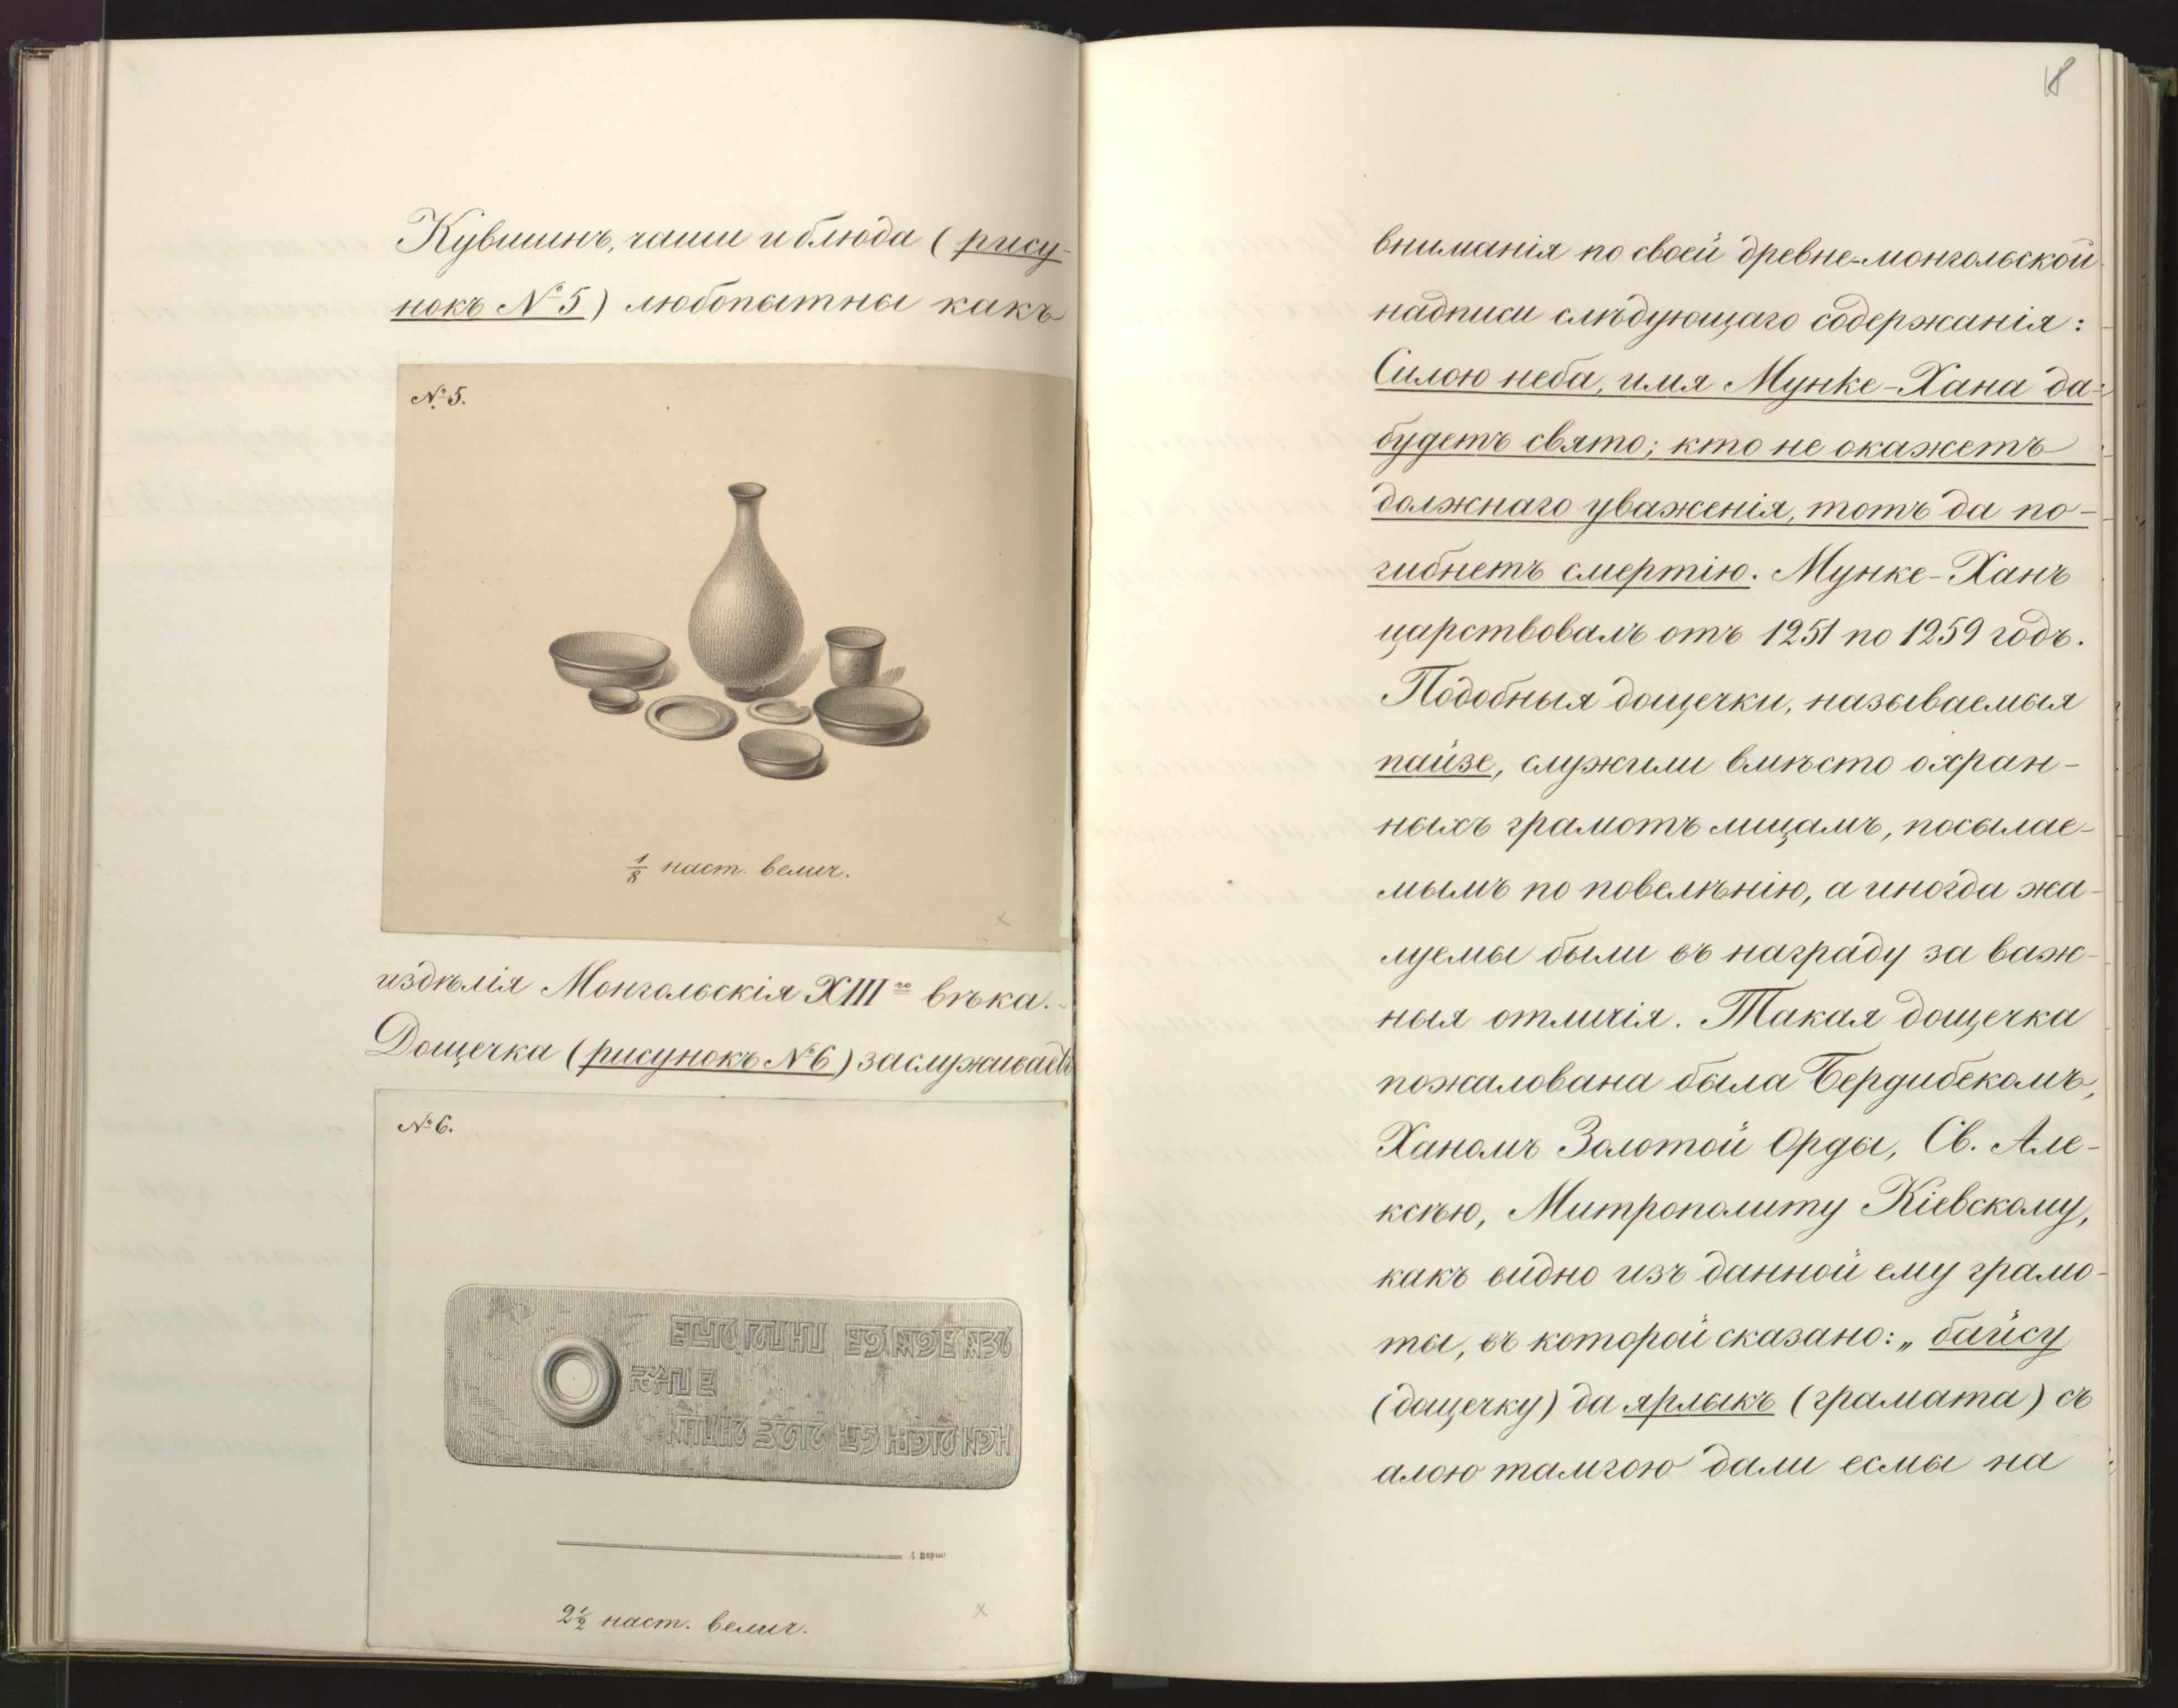 Кувшинъ, чаши и блюда (рису-
нокъ № 5) любопытны какъ
№ 5.
1/8 наст. велич.
издѣлія Монгольскія XIII го вѣка.
Дощечка (рисунокъ № 6) заслуживаетъ
№ 6.
2 1/2 наст. велич.
18
вниманія по своей древне-монгольской
надписи слѣдующаго содержанія:
Силою неба, имя Мунке-Хана да-
будетъ свято; кто не окажетъ
должнаго уваженія, тотъ да по-
гибнетъ смертію. Мунке-Ханъ
царствовалъ отъ 1251 по 1259 годъ.
Подобныя дощечки, называемыя
пайзе, служили вмѣсто охран-
ныхъ грамотъ лицамъ, посылае-
мымъ по повелѣнію, а иногда жа-
луемы были въ награду за важ-
ныя отличія. Такая дощечка
пожалована была Бердибекомъ,
Ханомъ Золотой Орды, Св. Але-
ксѣю, Митрополиту Кіевскому,
какъ видно изъ данной ему грамо-
ты, въ которой сказано: „байсу
(дощечку) да ярлыкъ (грамата) съ
алою тамгою дали есмы на